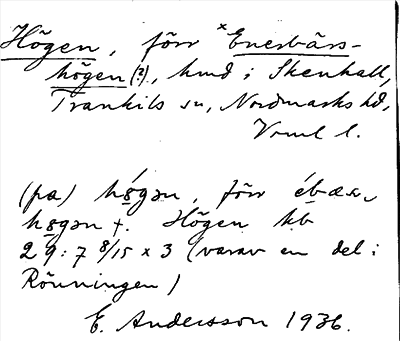 Högen, förr ˣEnerbärs-
högen (?), hmd i Skenhall,
Trankils sn, Nordmarks hd,
Vrml l.
(pœ) hö́gən, förr
högən †. Högen kb
29:7 8/15 x 3 (varav en del i
Rönningen)
E. Andersson 1936.